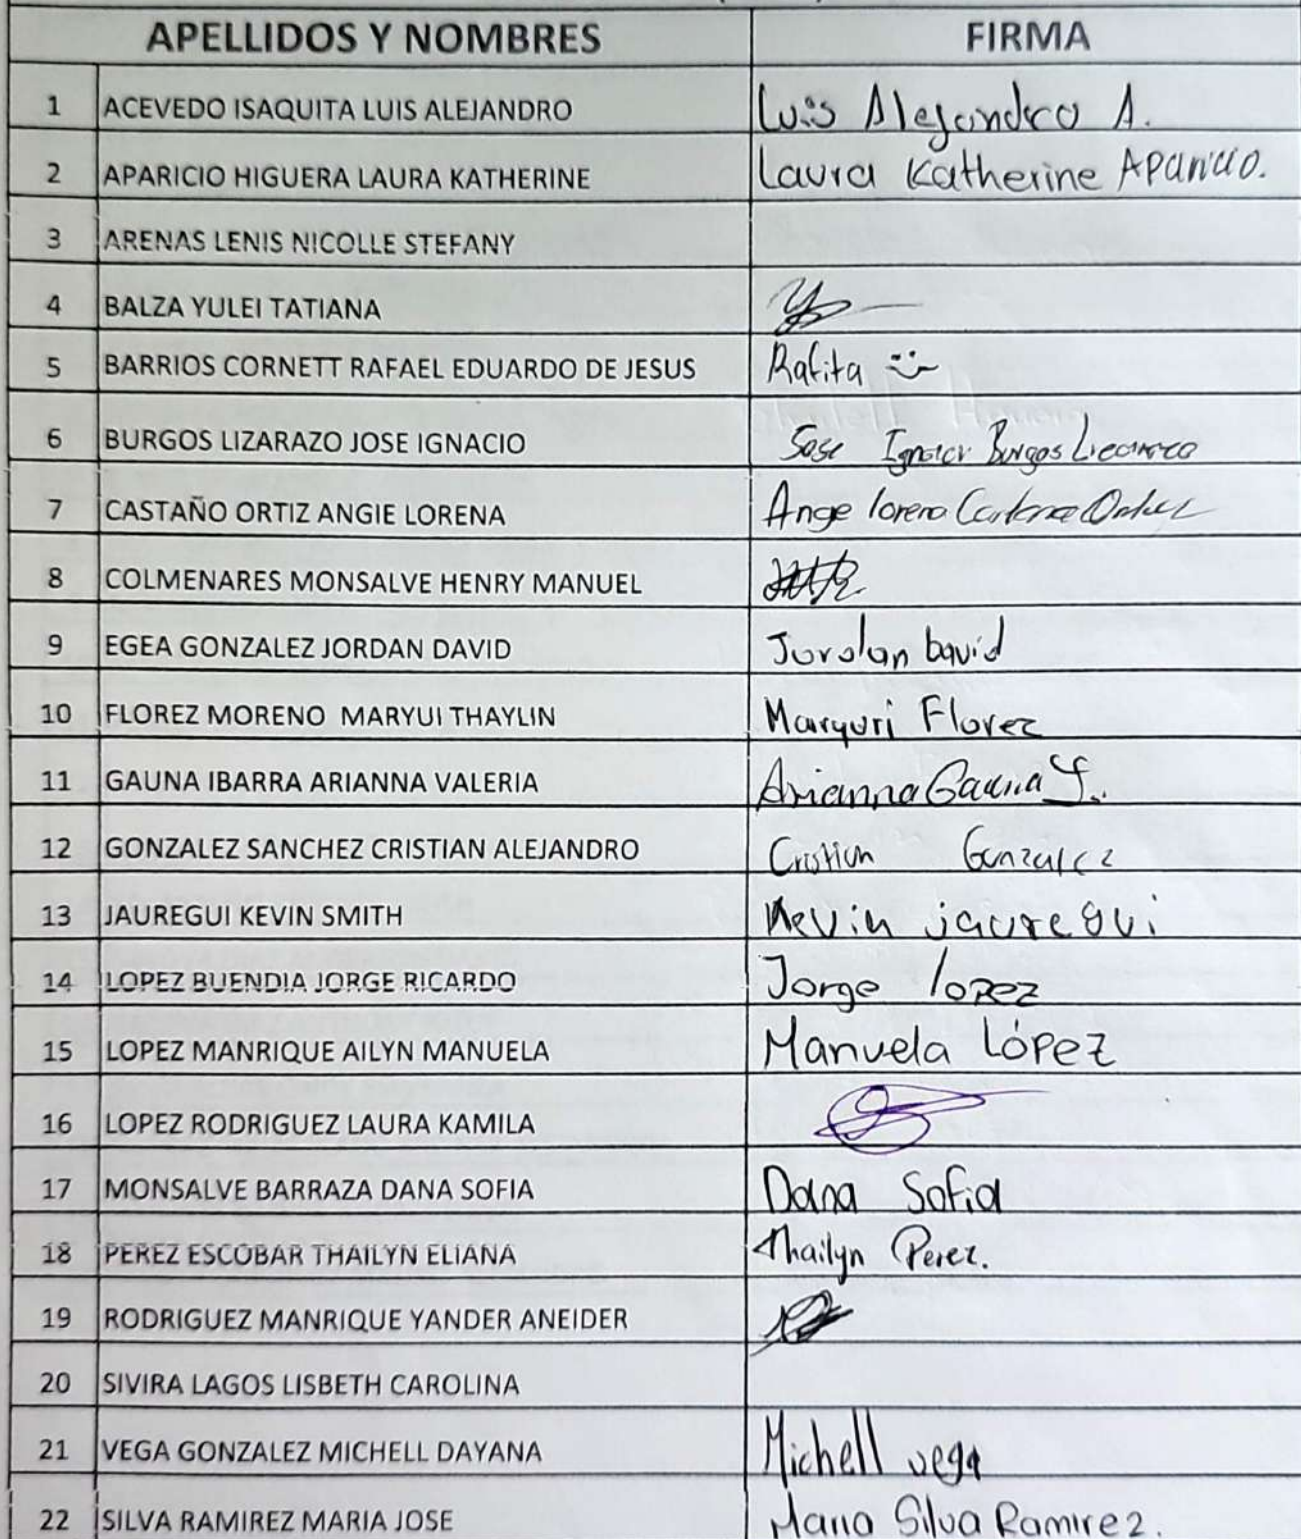 APELLIDOS Y NOMBRES FIRMA
1 ACEVEDO ISAQUITA LUIS ALEJANDRO Luis Alejandro A.
2 APARICIO HIGUERA LAURA KATHERINE Laura Katherine Aparicio.
3 ARENAS LENIS NICOLLE STEFANY
4 BALZA YULEI TATIANA
5 BARRIOS CORNETT RAFAEL EDUARDO DE JESUS Rafita
6 BURGOS LIZARAZO JOSE IGNACIO Jose Ignacio Burgos
7 CASTAÑO ORTIZ ANGIE LORENA Ange lorena
8 COLMENARES MONSALVE HENRY MANUEL
9 EGEA GONZALEZ JORDAN DAVID Jordan David
10 FLOREZ MORENO MARYUI THAYLIN Maryuri Florez
11 GAUNA IBARRA ARIANNA VALERIA Arianna Gauna I.
12 GONZALEZ SANCHEZ CRISTIAN ALEJANDRO Cristian Gonzalez
13 JAUREGUI KEVIN SMITH Kevin jauregui
14 LOPEZ BUENDIA JORGE RICARDO Jorge lopez
15 LOPEZ MANRIQUE AILYN MANUELA Manuela López
16 LOPEZ RODRIGUEZ LAURA KAMILA
17 MONSALVE BARRAZA DANA SOFIA Dana Sofia
18 PEREZ ESCOBAR THAILYN ELIANA Thailyn Perez.
19 RODRIGUEZ MANRIQUE YANDER ANEIDER
20 SIVIRA LAGOS LISBETH CAROLINA
21 VEGA GONZALEZ MICHELL DAYANA Michell vega
22 SILVA RAMIREZ MARIA JOSE Maria Silva Ramirez.